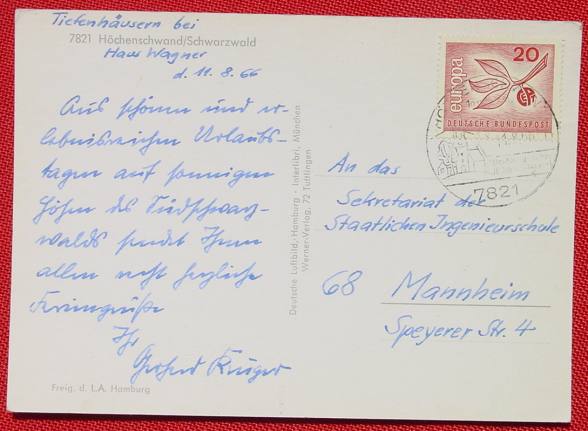 Tiefenhäusern bei
7821 Höchenschwand/Schwarzwald
Haus Wagner
d. 11. 8. 66
Aus schönen und er-
lebnisreichen Urlaubs-
tagen auf sonnigen
Höhen des Südschwarz-
walds sendet Ihnen
allen recht herzliche
Feriengrüße
Ihr
Krüger
Freig. d. L.A. Hamburg
Deutsche Luftbild, Hamburg - Interlibri, München
Werner-Verlag, 72 Tuttlingen
europa
20
DEUTSCHE BUNDESPOST
7821
An das
Sekretariat der
Staatlichen Ingenieurschule
68 Mannheim
Speyerer Str. 4